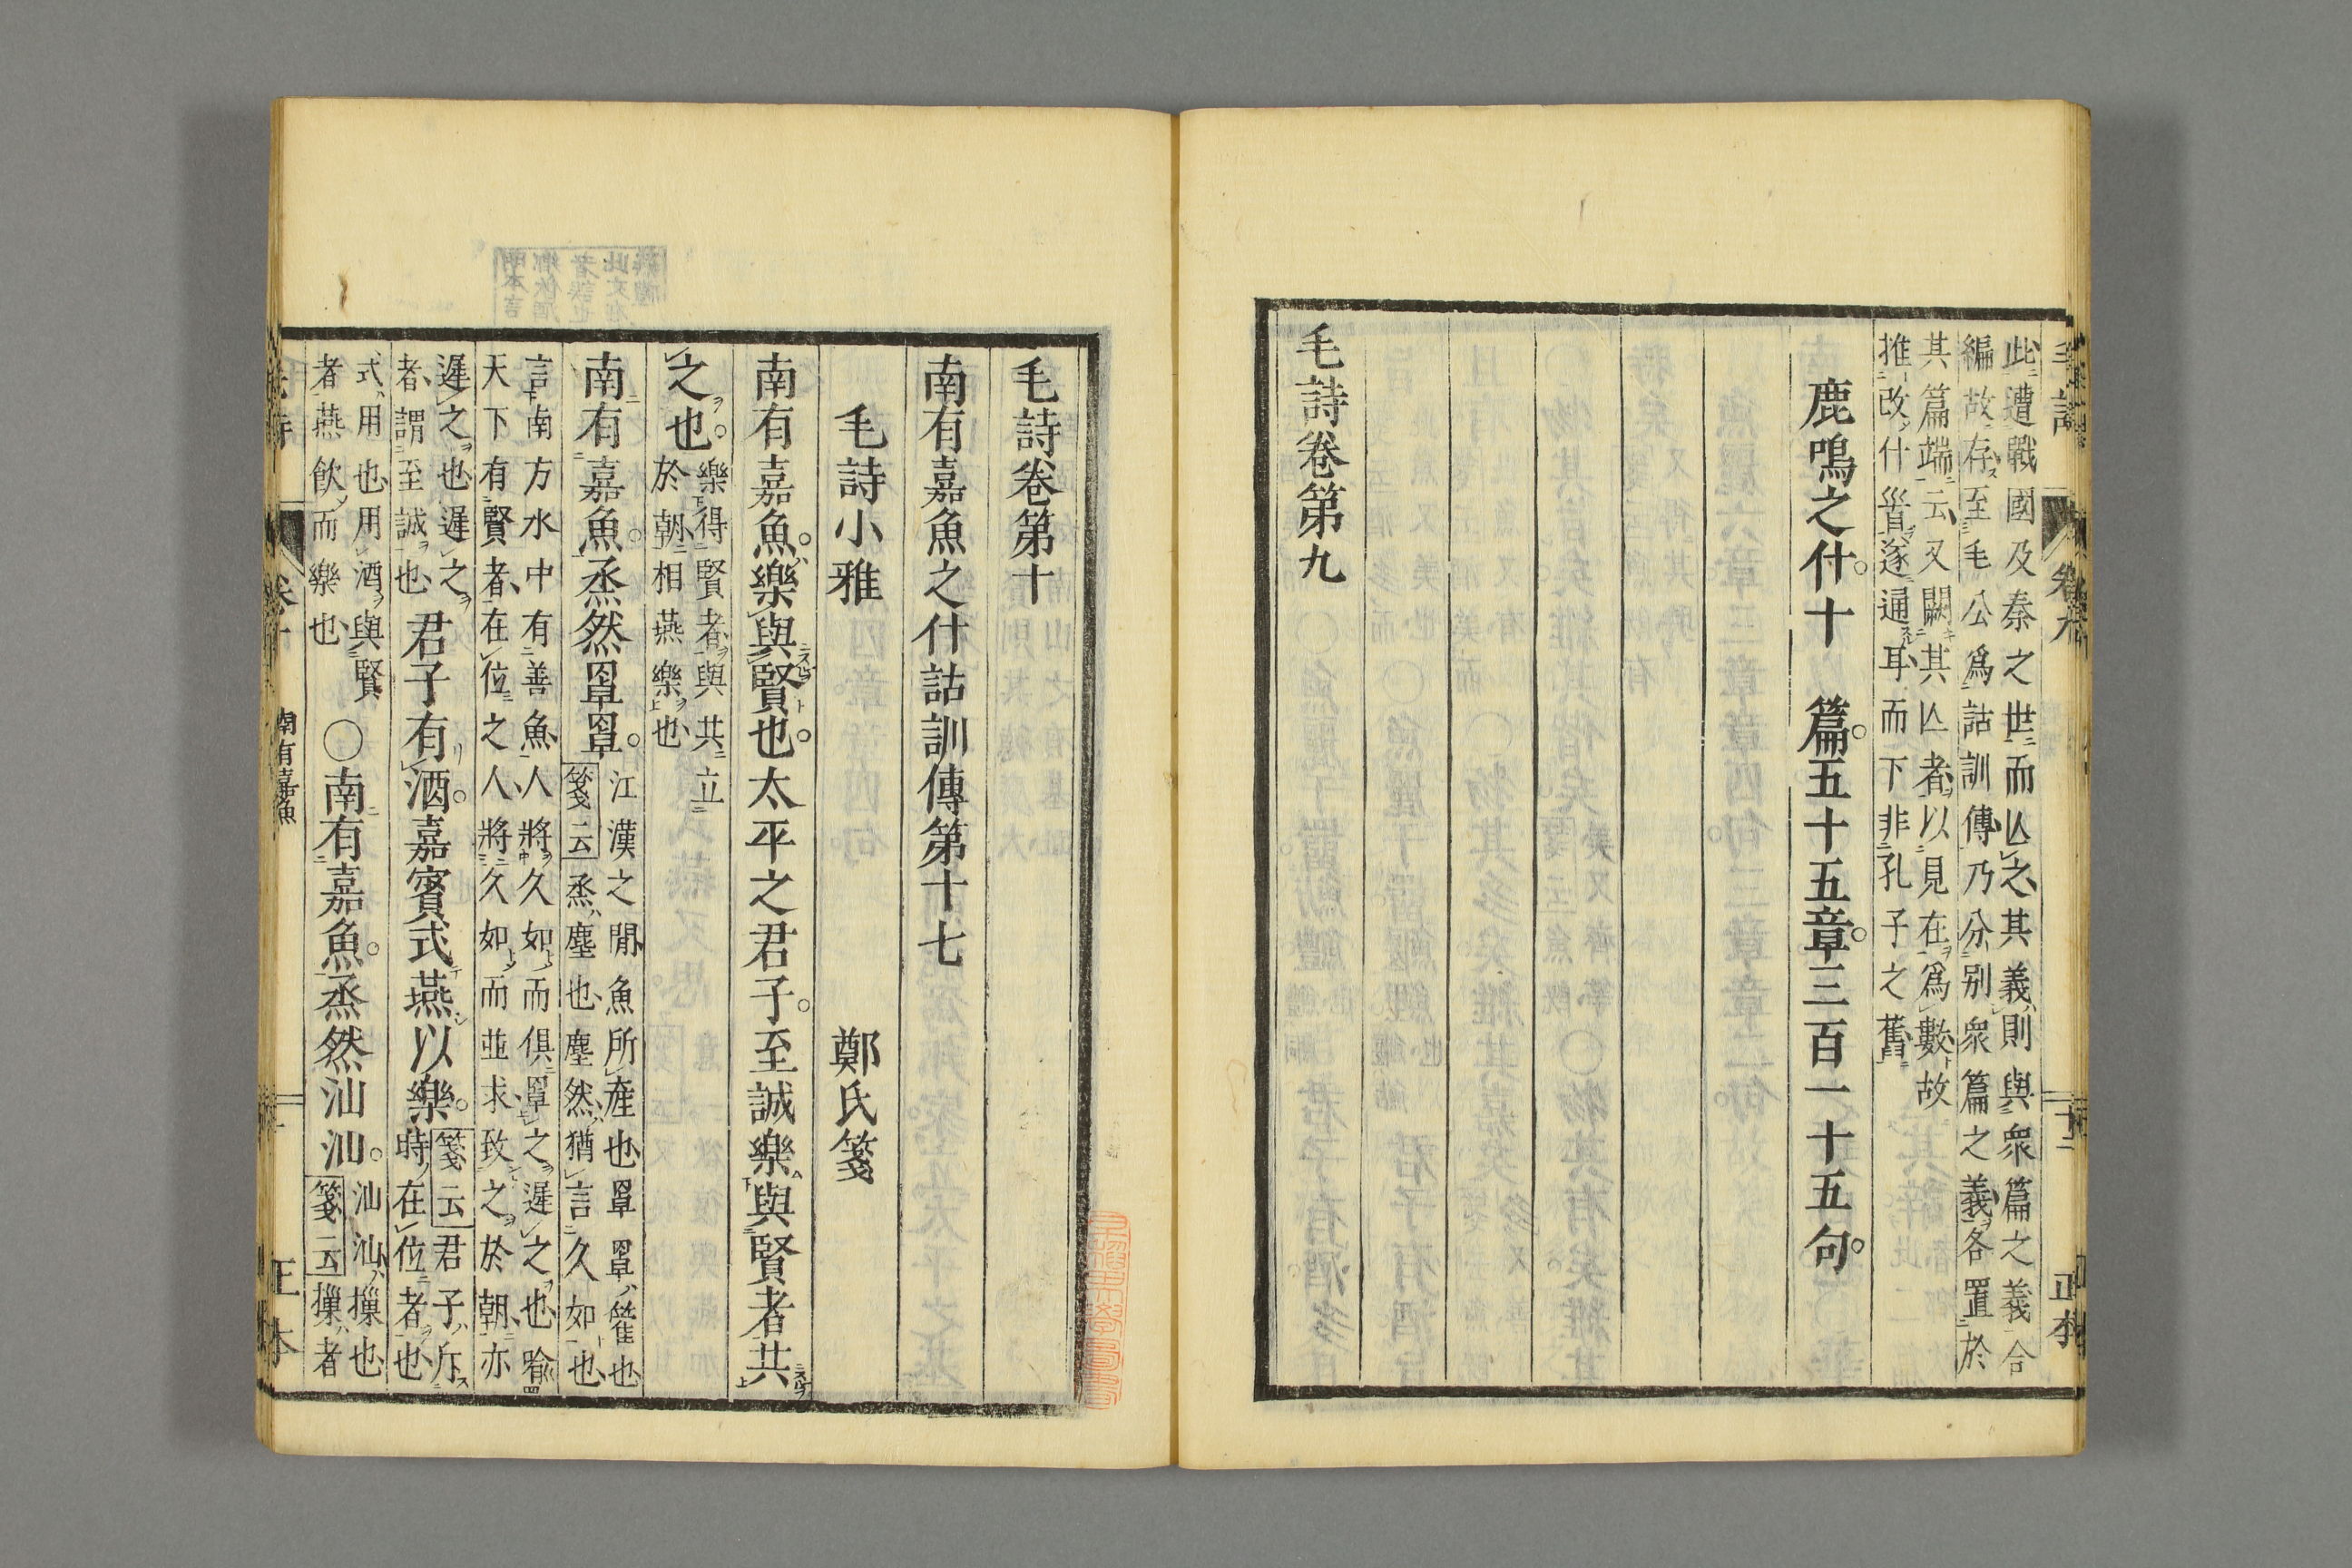 此遭戰國及秦之世而亾之其義則與衆篇之義合
編故存至毛公爲詁訓傳乃分别衆篇之義各置於
其篇端云又闕其亾者以見在爲數故
推改什首遂通耳而下非孔子之舊
鹿鳴之什十 篇五十五章三百一十五句
毛詩卷第九
毛詩卷第十
南有嘉魚之什詁訓傳第十七
毛詩小雅 鄭氏箋
南有嘉魚樂與賢也太平之君子至誠樂與賢者共
之也
樂得賢者與共立
於朝相燕樂也
南有嘉魚烝然罩罩
江漢之閒魚所產也罩罩籗也
箋云烝塵也塵然猶言久如也
言南方水中有善魚人將久如而俱罩之遲之也喻
天下有賢者在位之人將久如而並求致之於朝亦
遲之也遲之
者謂至誠也
君子有酒嘉賓式燕以樂
箋云君子斥
時在位者也
式用也用酒與賢
者燕飲而樂也
○南有嘉魚烝然汕汕
汕汕樔也
箋云樔者
南有嘉魚